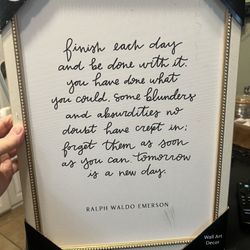 finish each day
and be done with it.
you have done what
you could. some blunders
and absurdities no
doubt have crept in;
forget them as soon
as you can tomorrow
is a new day.
RALPH WALDO EMERSON
Wall Art
Decor